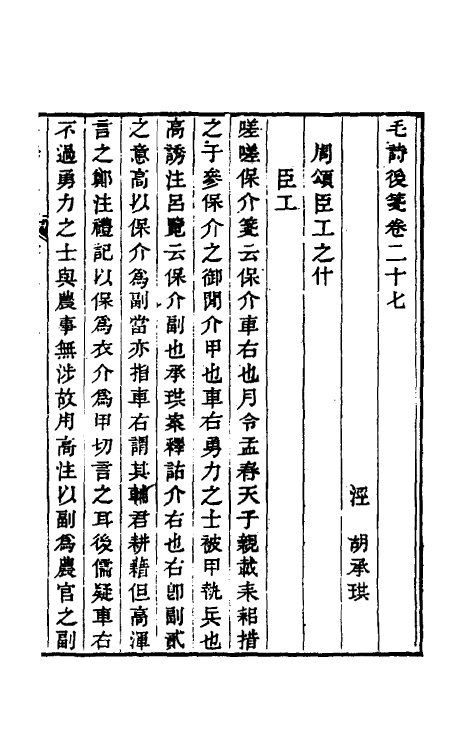 毛詩後箋卷二十七
涇　胡承珙
周頌臣工之什
臣工
嗟嗟保介箋云保介車右也月令孟春天子親載耒耜措
之于參保介之御閒介甲也車右勇力之士被甲執兵也
高誘注呂覽云保介副也承珙案釋詁介右也右卽副貳
之意高以保介爲副當亦指車右謂其輔君耕藉但高渾
言之鄭注禮記以保爲衣介爲甲切言之耳後儒疑車右
不過勇力之士與農事無涉故用高注以副爲農官之副